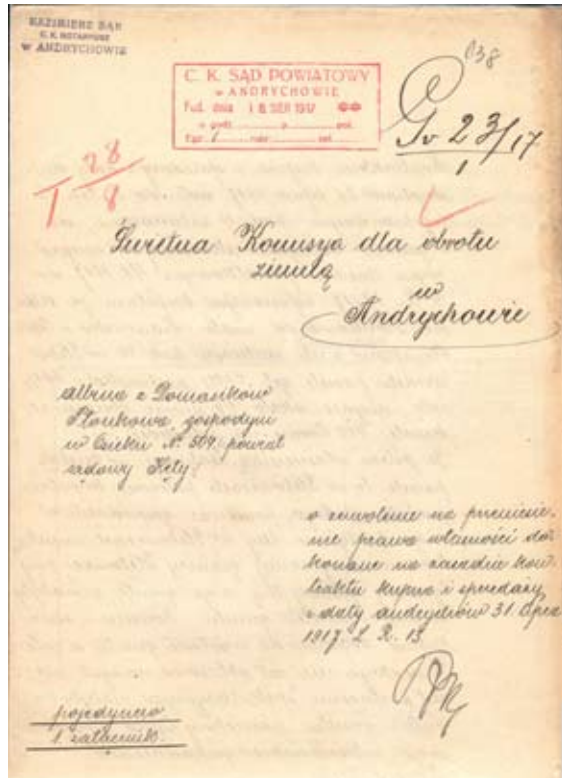 KAZIMIERZ BĄK
C. K. NOTARYUSZ
W ANDRYCHOWIE
038
C. K. SĄD POWIATOWY
w ANDRYCHOWIE
Pod. dnia 18 SIER 1917
o godz. po poł.
Egz. 1 rubr. zał.
Gv 23/17
1
28
I 8
Świetna Komisya dla obrotu
ziemią
w
Andrychowie
Albina z Domasików
gospodyni
w Osieku N. 504, powiat
sądowy Kęty
o zezwolenie na przeniesie-
nie prawa własności do
konane na zasadzie kon-
traktu kupna i sprzedaży
z daty Andrychów 31. lipca
1917. L. R. 13
pojedynczo
1. załącznik.